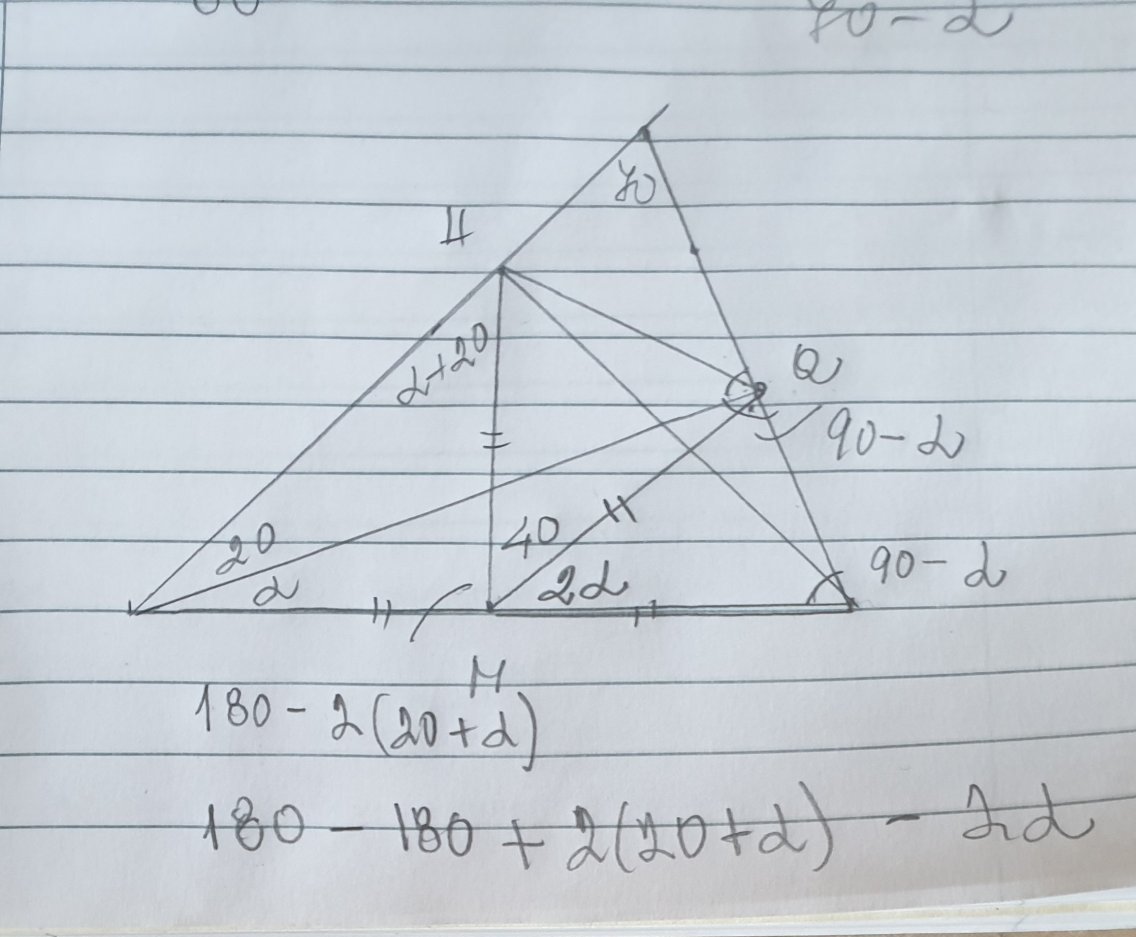 70 - α
70
H
α+20
Q
90 - α
20
α
40
2α
90 - α
M
180 - 2(20+α)
180 - 180 + 2(20+α) - 2α